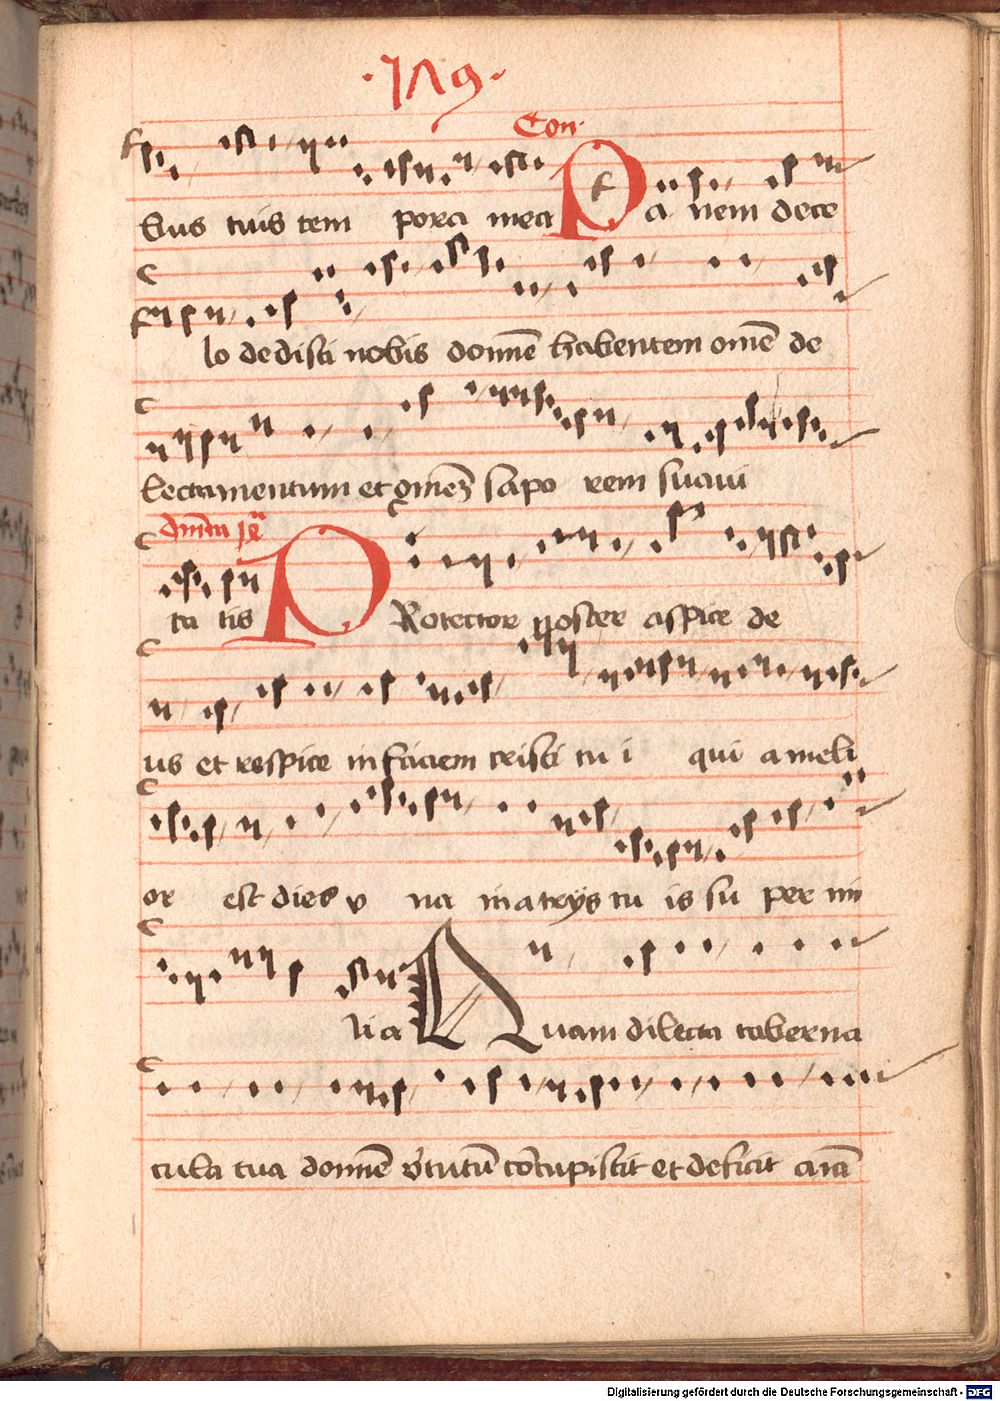 ·189·
Con
bus tuis tem pora mea Pa nem de ce
lo dedisti nobis domīe habentem omē de
lectamentum et omēs sapo rem suaui
ta tis PRotector noster aspice de
us et respice in faciem cristi tu i qui a meli
or est dies v na in atrys tu is su per mi
lia Quam dilecta taberna
cula tua domīe v̄tutū cōcupiscit et deficit aīa
Digitalisierung gefördert durch die Deutsche Forschungsgemeinschaft - DFG